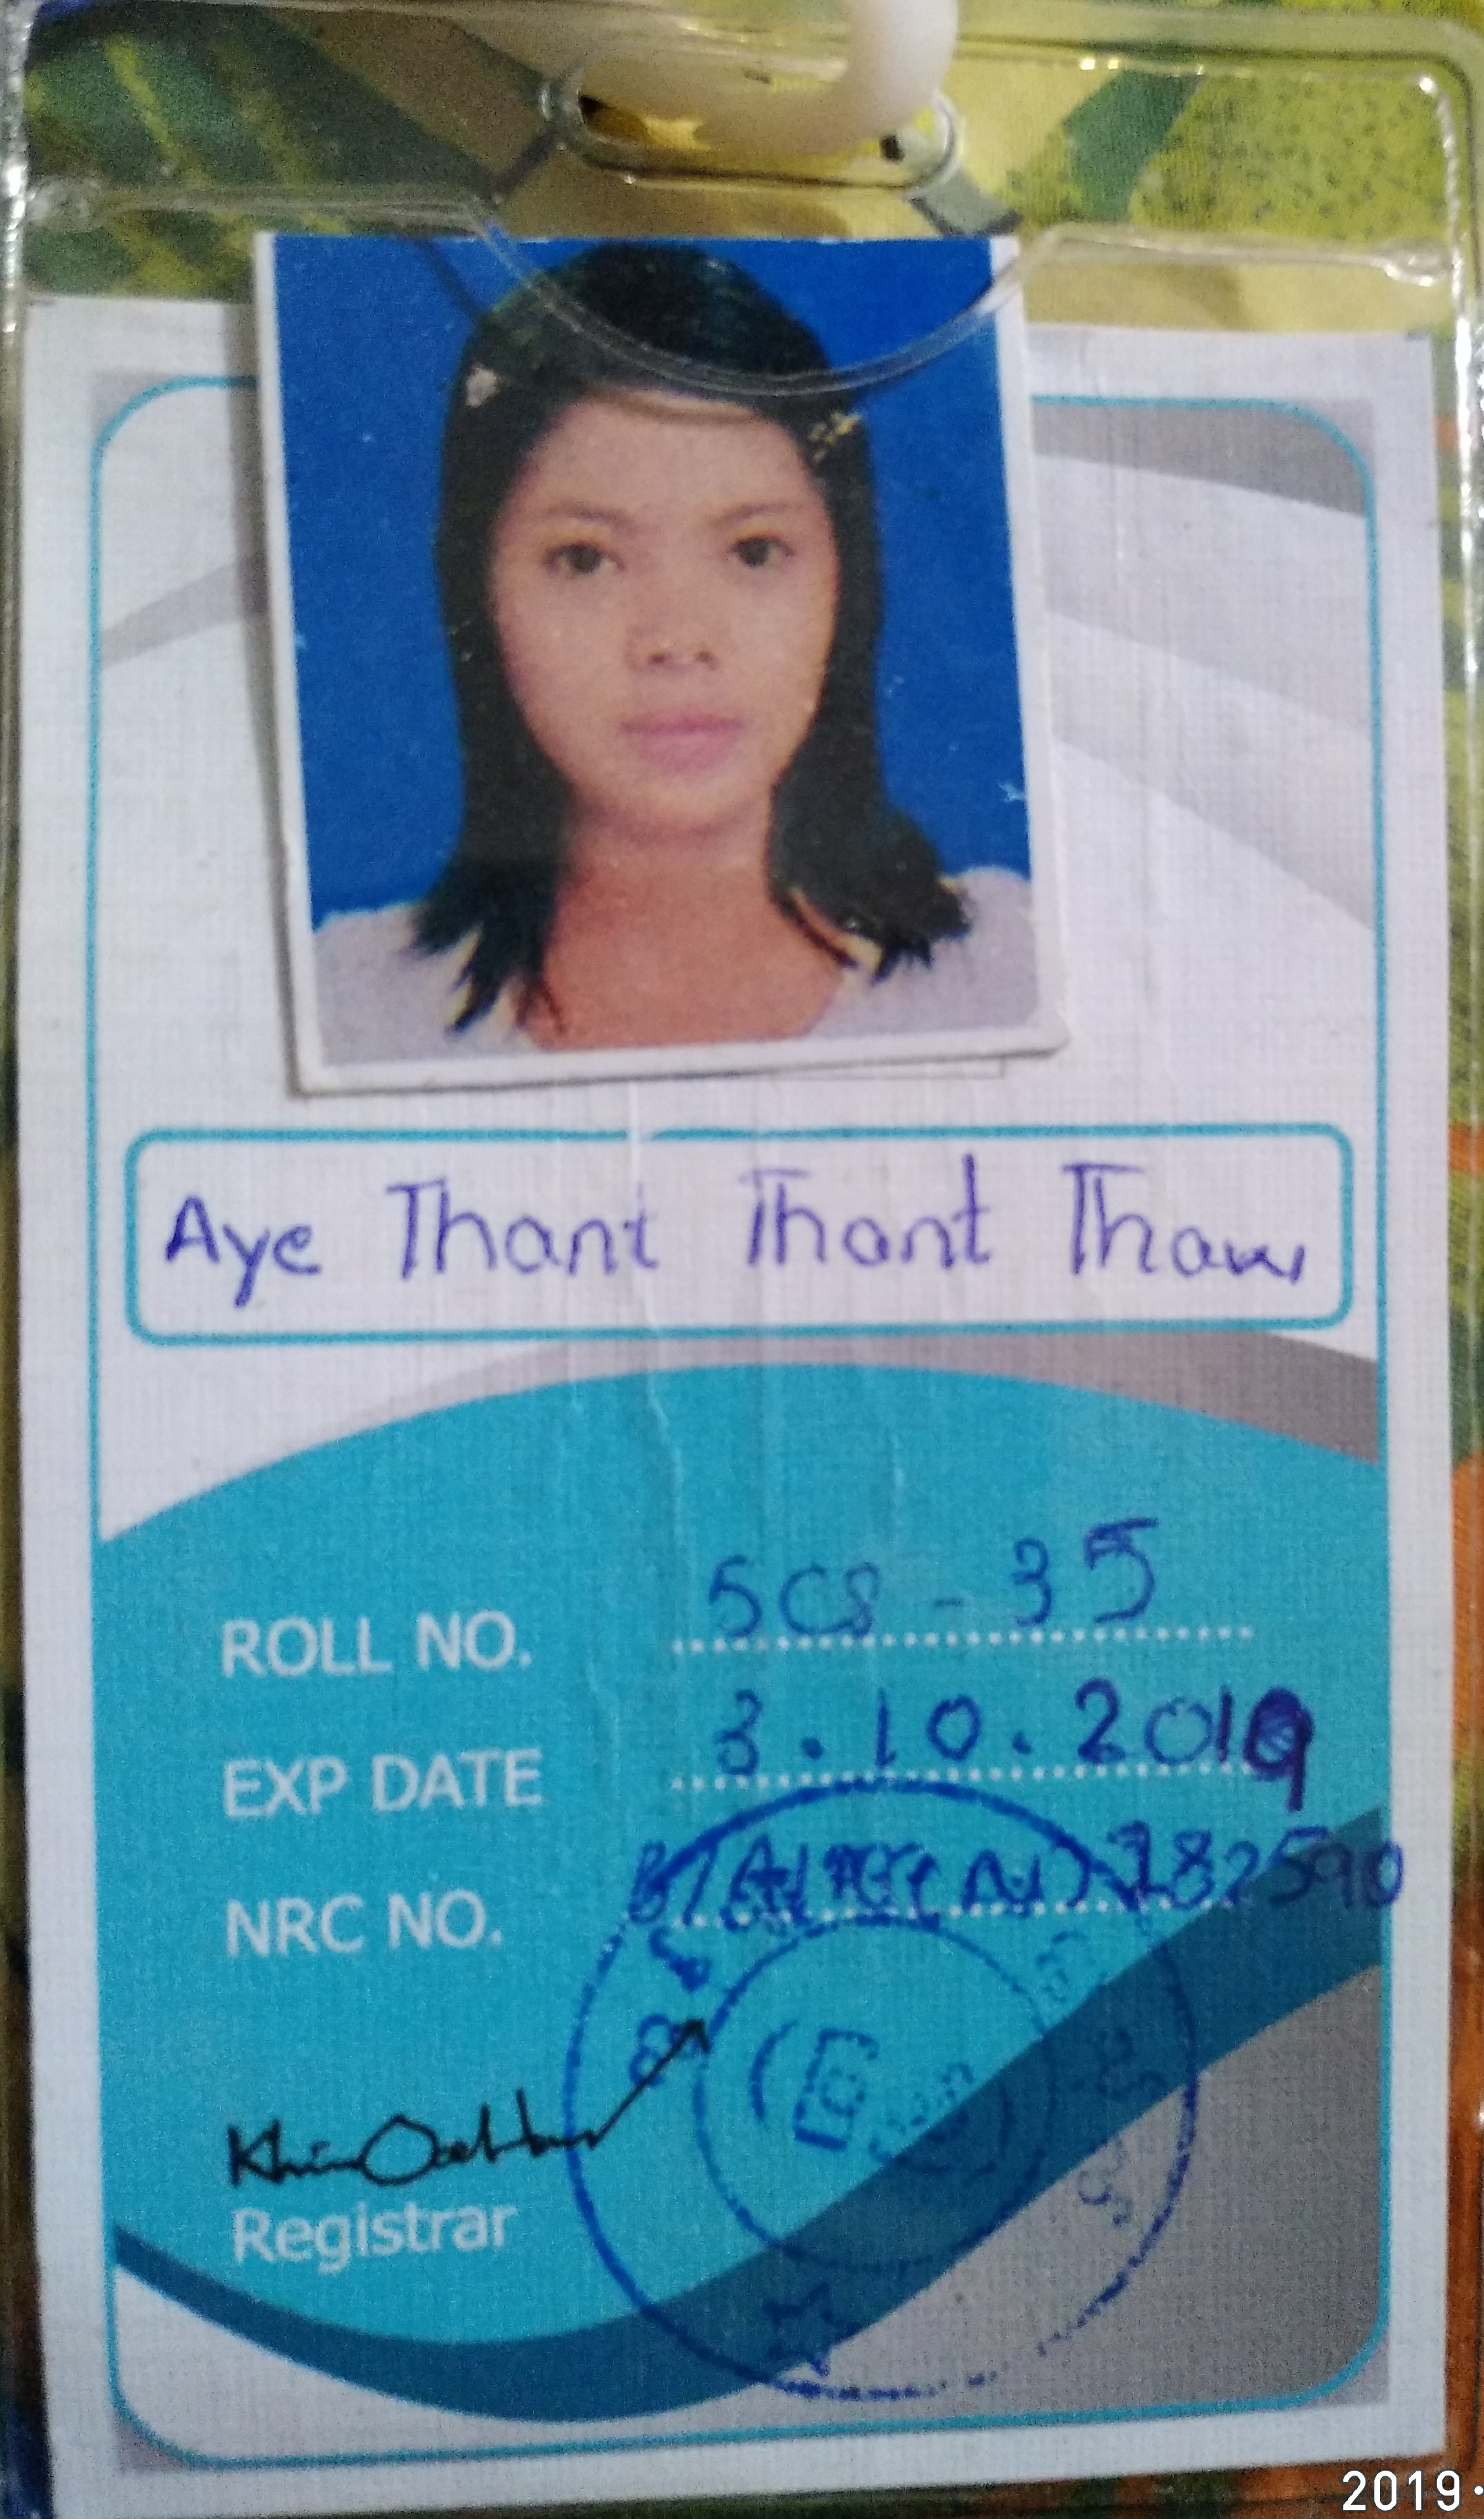 Aye Thant Thant Thaw
ROLL NO. 5CS - 35
EXP DATE 3.10.2019
NRC NO. 182590
Registrar
2019